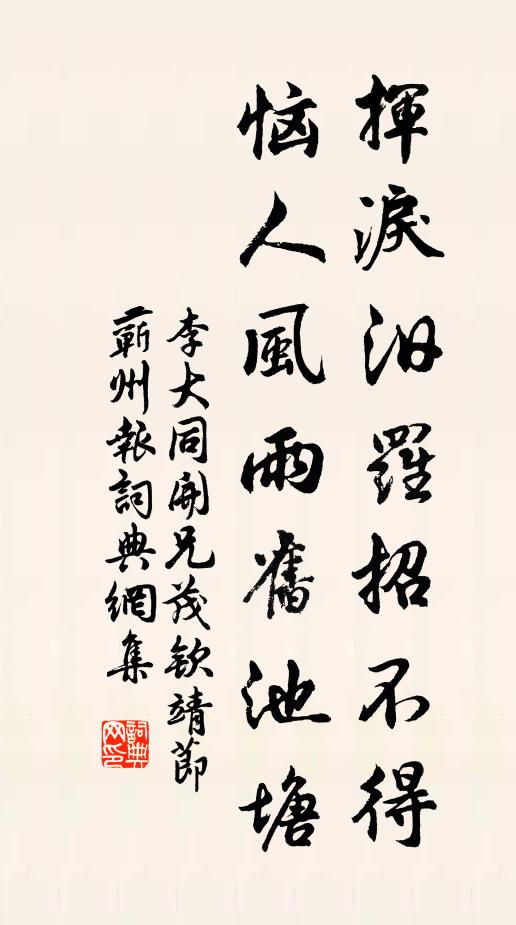 揮淚汨羅招不得
惱人風雨舊池塘
李大同聞兄茂欽靖節
蘄州報詞典網集
詞典